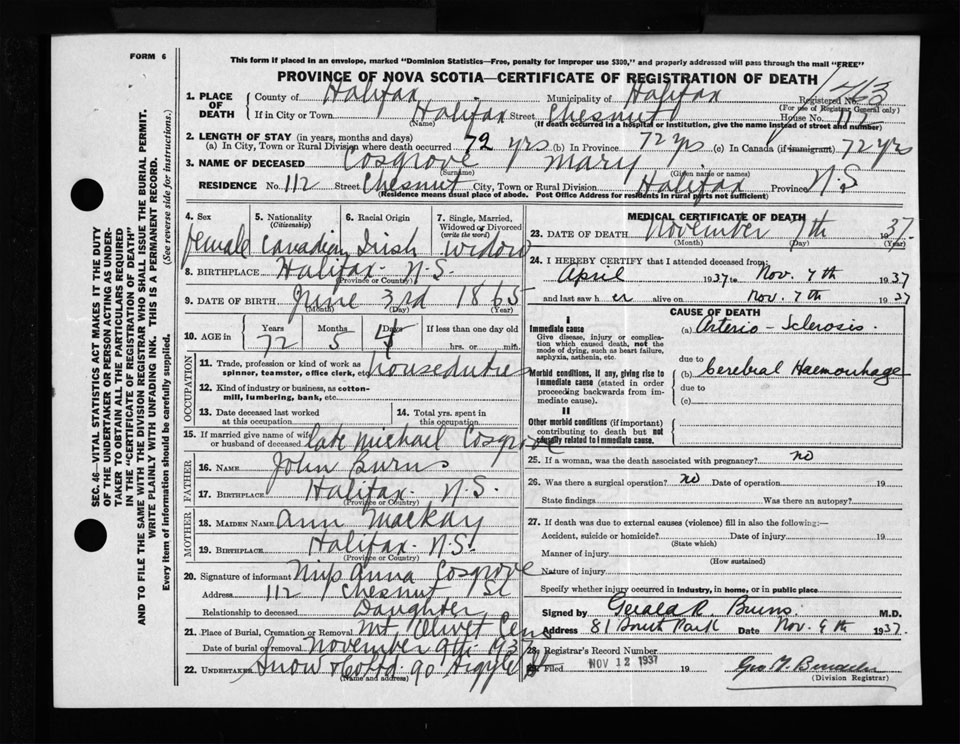 FORM 6
This form if placed in an envelope, marked "Dominion Statistics—Free, penalty for improper use $300," and properly addressed will pass through the mail "FREE"
PROVINCE OF NOVA SCOTIA—CERTIFICATE OF REGISTRATION OF DEATH
1463
1. PLACE OF DEATH County of Halifax Municipality of Halifax Registered No. (For use of Registrar General only)
If in City or Town Halifax (Name) Street Chesnut House No. 112
(If death occurred in a hospital or institution, give the name instead of street and number)
2. LENGTH OF STAY (in years, months and days)
(a) In City, Town or Rural Division where death occurred 72 yrs (b) In Province 72 yrs (c) In Canada (if immigrant) 72 yrs
3. NAME OF DECEASED Cosgrove Mary
(Surname) (Given name or names)
RESIDENCE No. 112 Street Chesnut City, Town or Rural Division Halifax Province N.S
(Residence means usual place of abode. Post Office Address for residents in rural parts not sufficient)
4. Sex female
5. Nationality (Citizenship) Canadian
6. Racial Origin Irish
7. Single, Married, Widowed or Divorced (write the word) Widow
8. BIRTHPLACE Halifax - N.S.
(Province or Country)
9. DATE OF BIRTH June 3rd 1865
(Month) (Day) (Year)
10. AGE in Years 72 Months 5 Days If less than one day old hrs. or min.
OCCUPATION
11. Trade, profession or kind of work as spinner, teamster, office clerk, etc. houseduties
12. Kind of industry or business, as cotton-mill, lumbering, bank, etc.
13. Date deceased last worked at this occupation
14. Total yrs. spent in this occupation
15. If married give name of wife or husband of deceased late Michael Cosgrove
FATHER
16. NAME John Burns
17. BIRTHPLACE Halifax - N.S.
(Province or Country)
MOTHER
18. MAIDEN NAME Ann Mackay
19. BIRTHPLACE Halifax - N.S.
(Province or Country)
20. Signature of informant Miss Anna Cosgrove
Address 112 Chesnut St
Relationship to deceased Daughter
21. Place of Burial, Cremation or Removal Mt. Olivet Cem
Date of burial or removal November 9th 1937
22. UNDERTAKER Snow & Co Ltd. 90 Argyle St
(Name and address)
MEDICAL CERTIFICATE OF DEATH
23. DATE OF DEATH November 7th 1937.
(Month) (Day) (Year)
24. I HEREBY CERTIFY that I attended deceased from:
April 1937 to Nov. 7th 1937
and last saw her alive on Nov. 7th 1937
CAUSE OF DEATH
I
Immediate cause
Give disease, injury or complication which caused death, not the mode of dying, such as heart failure, asphyxia, asthenia, etc.
(a) Arterio - Sclerosis.
due to
Morbid conditions, if any, giving rise to immediate cause (stated in order proceeding backwards from immediate cause).
(b) Cerebral Haemorrhage
due to
(c)
II
Other morbid conditions (if important) contributing to death but not causally related to immediate cause.
25. If a woman, was the death associated with pregnancy? no
26. Was there a surgical operation? no Date of operation 19
State findings Was there an autopsy?
27. If death was due to external causes (violence) fill in also the following:—
Accident, suicide or homicide? Date of injury 19
(State which)
Manner of injury
(How sustained)
Nature of injury
Specify whether injury occurred in industry, in home, or in public place
Signed by Gerald R. Burns. M.D.
Address 81 South Park Date Nov. 9th 1937.
28. Registrar's Record Number
29. Filed NOV 12 1937 19
(Division Registrar)
SEC. 46—VITAL STATISTICS ACT MAKES IT THE DUTY
OF THE UNDERTAKER OR PERSON ACTING AS UNDER-
TAKER TO OBTAIN ALL THE PARTICULARS REQUIRED
IN THE "CERTIFICATE OF REGISTRATION OF DEATH"
AND TO FILE THE SAME WITH THE DIVISION REGISTRAR WHO SHALL ISSUE THE BURIAL PERMIT.
WRITE PLAINLY WITH UNFADING INK. THIS IS A PERMANENT RECORD.
Every item of information should be carefully supplied. (See reverse side for instructions.)